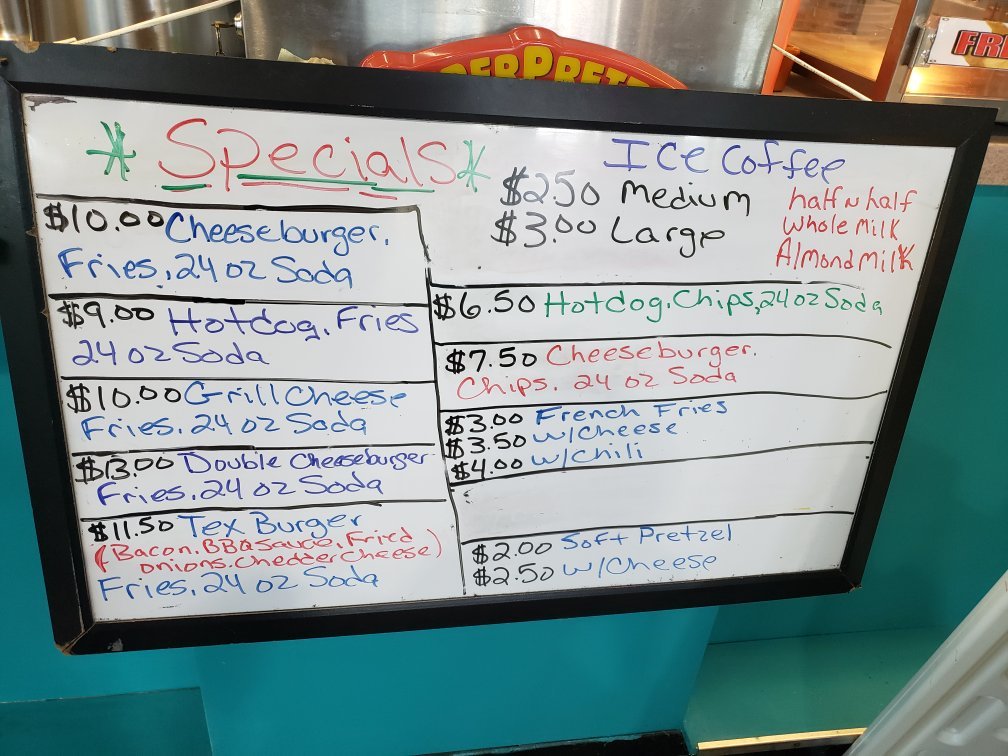 SUPERPRETZEL
* Specials *
$10.00 Cheeseburger,
Fries, 24 oz Soda
$9.00 Hotdog, Fries
24 oz Soda
$10.00 Grill Cheese
Fries, 24 oz Soda
$13.00 Double Cheeseburger
Fries, 24 oz Soda
$11.50 Tex Burger
(Bacon, BBQ Sauce, Fried
onions, Chedder Cheese)
Fries, 24 oz Soda
Ice Coffee
$2.50 Medium
$3.00 Large
half n half
Whole Milk
Almond Milk
$6.50 Hotdog, Chips, 24 oz Soda
$7.50 Cheeseburger,
Chips, 24 oz Soda
$3.00 French Fries
$3.50 w/Cheese
$4.00 w/Chili
$2.00 Soft Pretzel
$2.50 w/Cheese